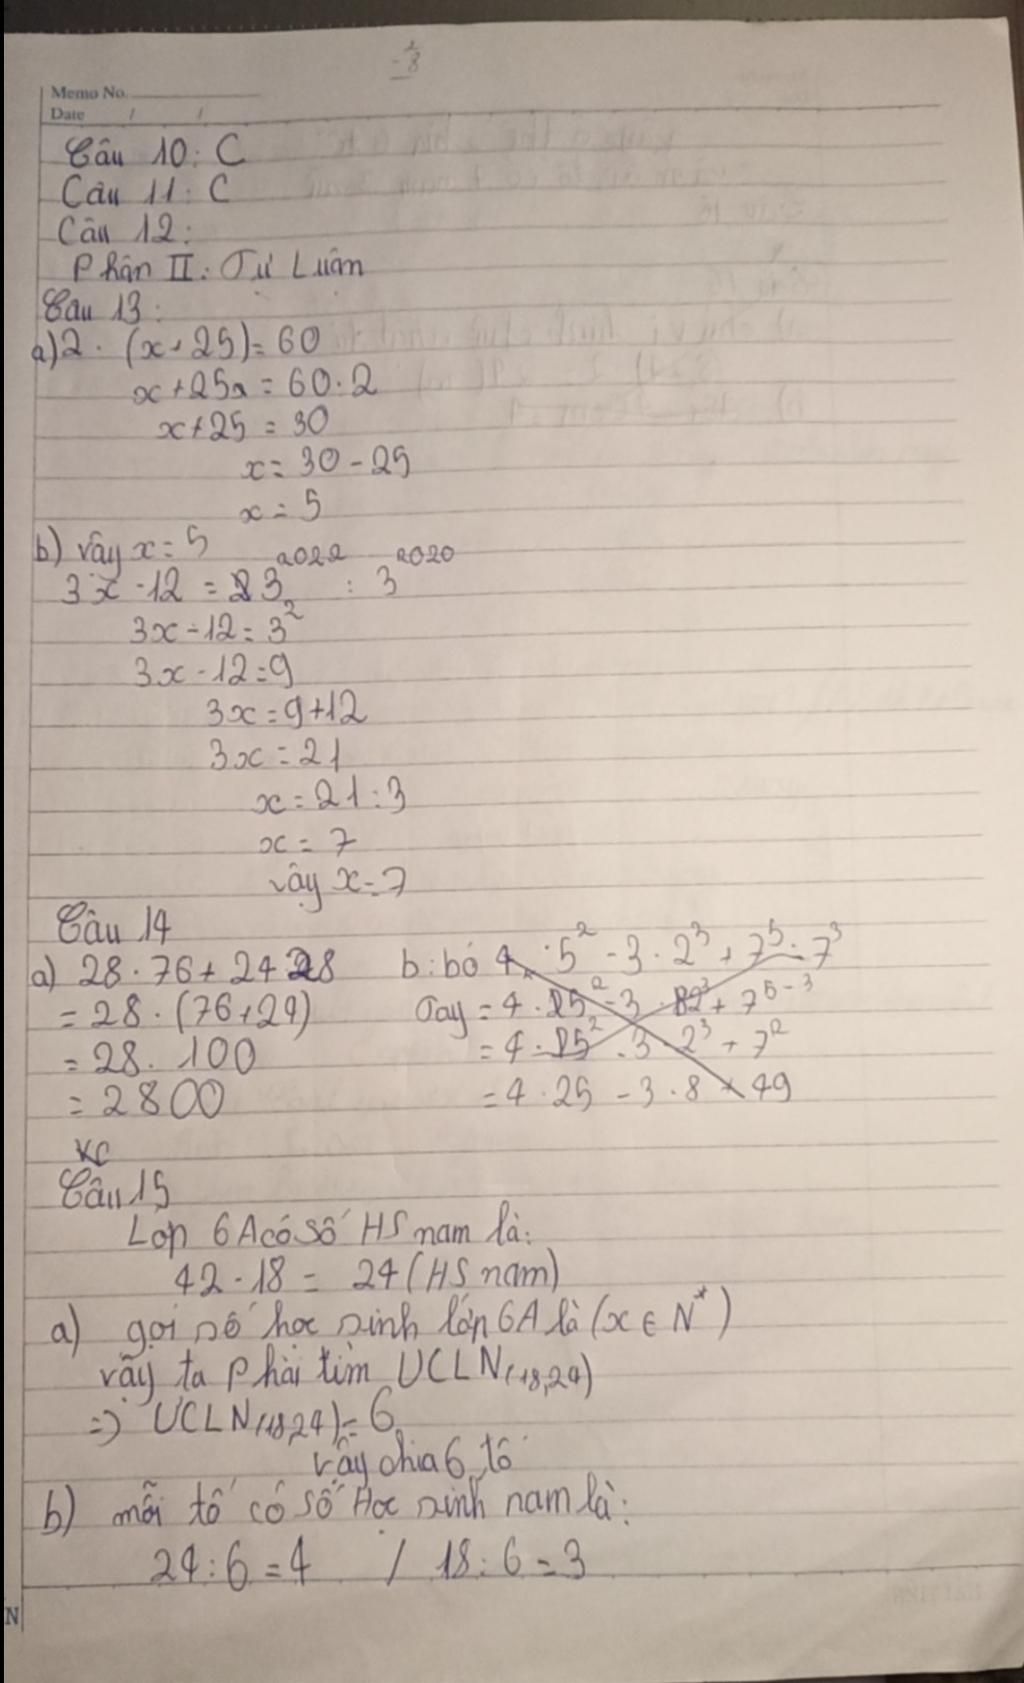 Memo No.
Date / /
Câu 10: C
Câu 11: C
Câu 12:
Phần II: Tự Luận
Câu 13:
a) 2 . (x + 25) = 60
x + 25 = 60 : 2
x + 25 = 30
x = 30 - 25
x = 5
b) vây x = 5
3x - 12 = 3²⁰²² : 3²⁰²⁰
3x - 12 = 3²
3x - 12 = 9
3x = 9 + 12
3x = 21
x = 21 : 3
x = 7
vây x = 7
Câu 14
a) 28 . 76 + 24 28
= 28 . (76 + 24)
= 28 . 100
= 2800
b: bỏ 4 . 5² - 3 . 2³ + 7⁵ : 7³
= 4 . 25² - 3 . 2³ + 7⁵⁻³
= 4 . 25² - 3 . 2³ + 7²
= 4 . 25 - 3 . 8 + 49
Câu 15
Lớp 6A có số HS nam là:
42 - 18 = 24 (HS nam)
a) gọi số học sinh lớp 6A là (x ∈ N*)
vãy ta phải tìm ƯCLN(18,24)
=> ƯCLN(18,24) = 6
vây chia 6 tổ
b) mỗi tổ có số Học sinh nam là:
24 : 6 = 4 / 18 : 6 = 3
N